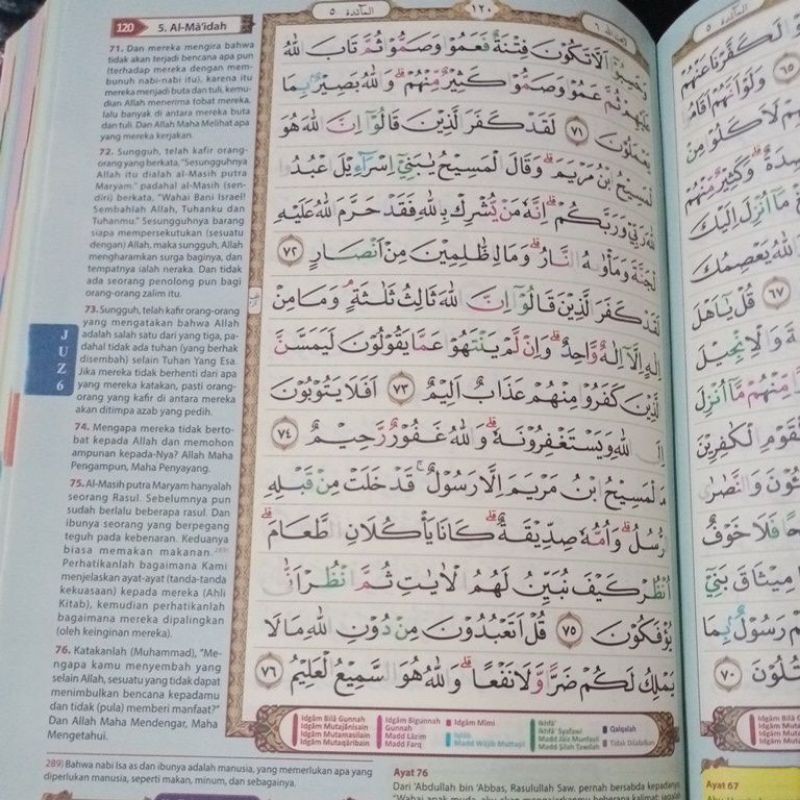 120
5. Al-Mâ'idah
71. Dan mereka mengira bahwa
tidak akan terjadi bencana apa pun
(terhadap mereka dengan mem-
bunuh nabi-nabi itu), karena itu
mereka menjadi buta dan tuli, kemu-
dian Allah menerima tobat mereka,
lalu banyak di antara mereka buta
dan tuli. Dan Allah Maha Melihat apa
yang mereka kerjakan.
72. Sungguh, telah kafir orang-
orang yang berkata, "Sesungguhnya
Allah itu dialah al-Masih putra
Maryam." padahal al-Masih (sen-
diri) berkata, "Wahai Bani Israel!
Sembahlah Allah, Tuhanku dan
Tuhanmu." Sesungguhnya barang
siapa mempersekutukan (sesuatu
dengan) Allah, maka sungguh, Allah
mengharamkan surga baginya, dan
tempatnya ialah neraka. Dan tidak
ada seorang penolong pun bagi
orang-orang zalim itu.
73. Sungguh, telah kafir orang-orang
yang mengatakan bahwa Allah
adalah salah satu dari yang tiga, pa-
dahal tidak ada tuhan (yang berhak
disembah) selain Tuhan Yang Esa.
Jika mereka tidak berhenti dari apa
yang mereka katakan, pasti orang-
orang yang kafir di antara mereka
akan ditimpa azab yang pedih.
74. Mengapa mereka tidak berto-
bat kepada Allah dan memohon
ampunan kepada-Nya? Allah Maha
Pengampun, Maha Penyayang.
75. Al-Masih putra Maryam hanyalah
seorang Rasul. Sebelumnya pun
sudah berlalu beberapa rasul. Dan
ibunya seorang yang berpegang
teguh pada kebenaran. Keduanya
biasa memakan makanan.289)
Perhatikanlah bagaimana Kami
menjelaskan ayat-ayat (tanda-tanda
kekuasaan) kepada mereka (Ahli
Kitab), kemudian perhatikanlah
bagaimana mereka dipalingkan
(oleh keinginan mereka).
76. Katakanlah (Muhammad), "Me-
ngapa kamu menyembah yang
selain Allah, sesuatu yang tidak dapat
menimbulkan bencana kepadamu
dan tidak (pula) memberi manfaat?"
Dan Allah Maha Mendengar, Maha
Mengetahui.
JUZ
6
المائدة ٥
١٢٠
وَحَسِبُوْٓا اَلَّا تَكُوْنَ فِتْنَةٌ فَعَمُوْا وَصَمُّوْا ثُمَّ تَابَ اللّٰهُ
عَلَيْهِمْ ثُمَّ عَمُوْا وَصَمُّوْا كَثِيْرٌ مِّنْهُمْۗ وَاللّٰهُ بَصِيْرٌۢ بِمَا
يَعْمَلُوْنَ ٧١ لَقَدْ كَفَرَ الَّذِيْنَ قَالُوْٓا اِنَّ اللّٰهَ هُوَ
الْمَسِيْحُ ابْنُ مَرْيَمَۗ وَقَالَ الْمَسِيْحُ يٰبَنِيْٓ اِسْرَاۤءِيْلَ اعْبُدُوا
اللّٰهَ رَبِّيْ وَرَبَّكُمْۗ اِنَّهٗ مَنْ يُّشْرِكْ بِاللّٰهِ فَقَدْ حَرَّمَ اللّٰهُ عَلَيْهِ
الْجَنَّةَ وَمَأْوٰىهُ النَّارُۗ وَمَا لِلظّٰلِمِيْنَ مِنْ اَنْصَارٍ ٧٢
لَقَدْ كَفَرَ الَّذِيْنَ قَالُوْٓا اِنَّ اللّٰهَ ثَالِثُ ثَلٰثَةٍۘ وَمَا مِنْ
اِلٰهٍ اِلَّآ اِلٰهٌ وَّاحِدٌۗ وَاِنْ لَّمْ يَنْتَهُوْا عَمَّا يَقُوْلُوْنَ لَيَمَسَّنَّ
الَّذِيْنَ كَفَرُوْا مِنْهُمْ عَذَابٌ اَلِيْمٌ ٧٣ اَفَلَا يَتُوْبُوْنَ
اِلَى اللّٰهِ وَيَسْتَغْفِرُوْنَهٗۗ وَاللّٰهُ غَفُوْرٌ رَّحِيْمٌ ٧٤
مَا الْمَسِيْحُ ابْنُ مَرْيَمَ اِلَّا رَسُوْلٌۚ قَدْ خَلَتْ مِنْ قَبْلِهِ
الرُّسُلُۗ وَاُمُّهٗ صِدِّيْقَةٌۗ كَانَا يَأْكُلَانِ الطَّعَامَۗ
اُنْظُرْ كَيْفَ نُبَيِّنُ لَهُمُ الْاٰيٰتِ ثُمَّ انْظُرْ اَنّٰى
يُؤْفَكُوْنَ ٧٥ قُلْ اَتَعْبُدُوْنَ مِنْ دُوْنِ اللّٰهِ مَا لَا
يَمْلِكُ لَكُمْ ضَرًّا وَّلَا نَفْعًاۗ وَاللّٰهُ هُوَ السَّمِيْعُ الْعَلِيْمُ ٧٦
Idgâm Bilâ Gunnah
Idgâm Mutajânisain
Idgâm Mutamasilain
Idgâm Mutaqâribain
Idgâm Bigunnah
Gunnah
Madd Lâzim
Madd Farq
Idgâm Mîmi
Madd Wâjib Muttasil
Ikhfâ'
Ikhfâ' Syafawi
Madd Jâiz Munfasil
Madd Silah Tawilah
Qalqalah
Tidak Dilafalkan
289) Bahwa nabi Isa as dan ibunya adalah manusia, yang memerlukan apa yang
diperlukan manusia, seperti makan, minum, dan sebagainya.
Ayat 76
Dari 'Abdullah bin 'Abbas, Rasulullah Saw. pernah bersabda kepadanya
Ayat 67